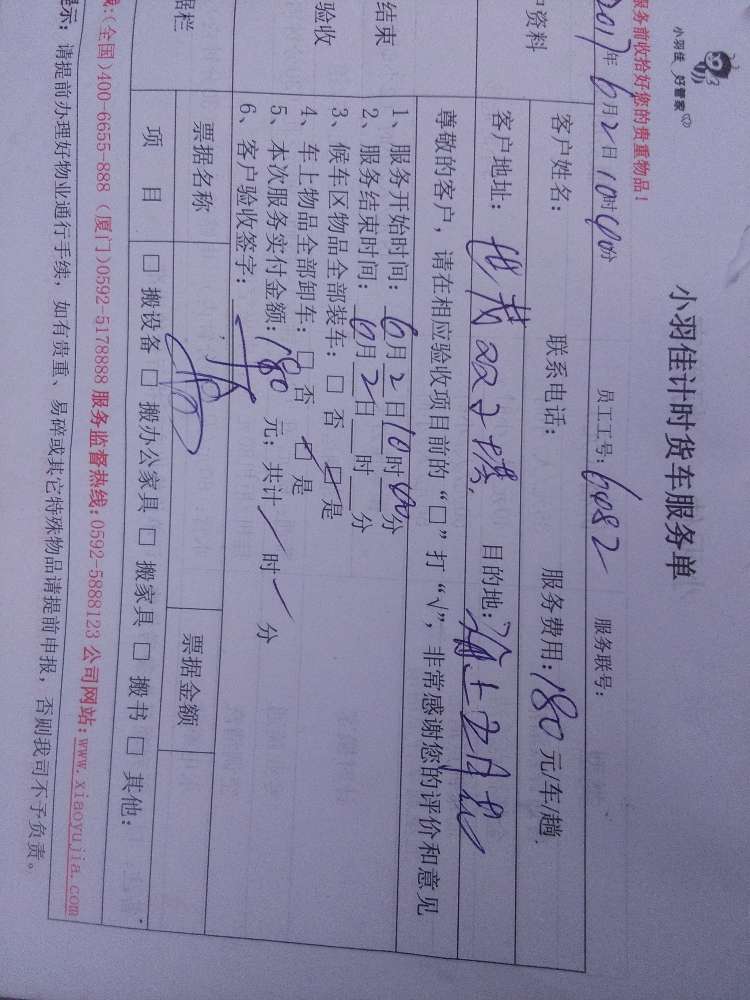 小羽佳 好管家
小羽佳计时货车服务单
服务前收拾好您的贵重物品！
2017年6月2日10时40分 员工工号：6482 服务联号：
户资料 客户姓名： 联系电话： 服务费用：180元/车/趟
客户地址： 目的地：
尊敬的客户，请在相应验收项目前的“□”打“√”，非常感谢您的评价和意见
结束
验收
1、服务开始时间：6月2日10时40分
2、服务结束时间：6月2日 时 分
3、候车区物品全部装车：□ 否 ☑ 是
4、车上物品全部卸车：□ 否 ☑ 是
5、本次服务实付金额：180元；共计/时/分
6、客户验收签字：
据栏 票据名称 票据金额
项 目 □ 搬设备 □ 搬办公家具 □ 搬家具 □ 搬书 □ 其他：
线：(全国)400-6655-888 (厦门)0592-5178888 服务监督热线：0592-5888123 公司网站：www.xiaoyujia.com
提示：请提前办理好物业通行手续，如有贵重、易碎或其它特殊物品请提前申报，否则我司不予负责。